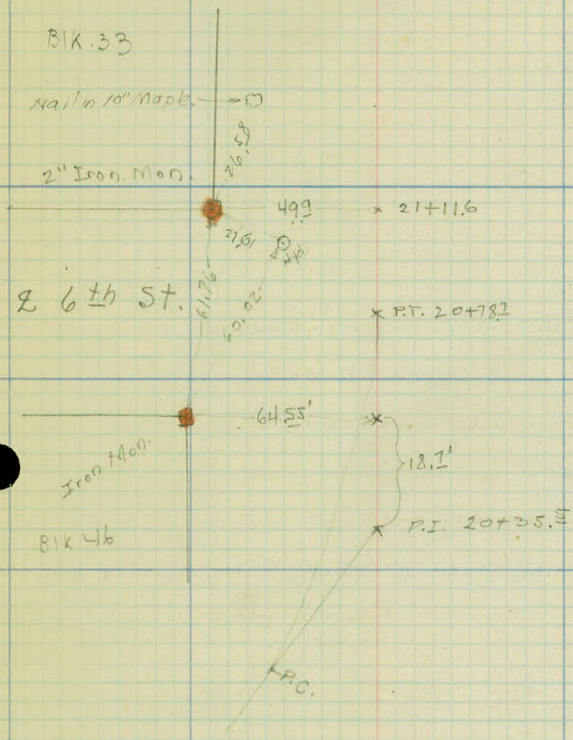 Blk. 33
Nail in 10" Maple.
26.58
2" Iron. Mon.
499
21+11.6
27.61
Hyd.
61.76
60.02
℄ 6th St.
P.T. 20+78.7
64.55'
18.7'
Iron Mon.
P.I. 20+35.
Blk 46
P.C.